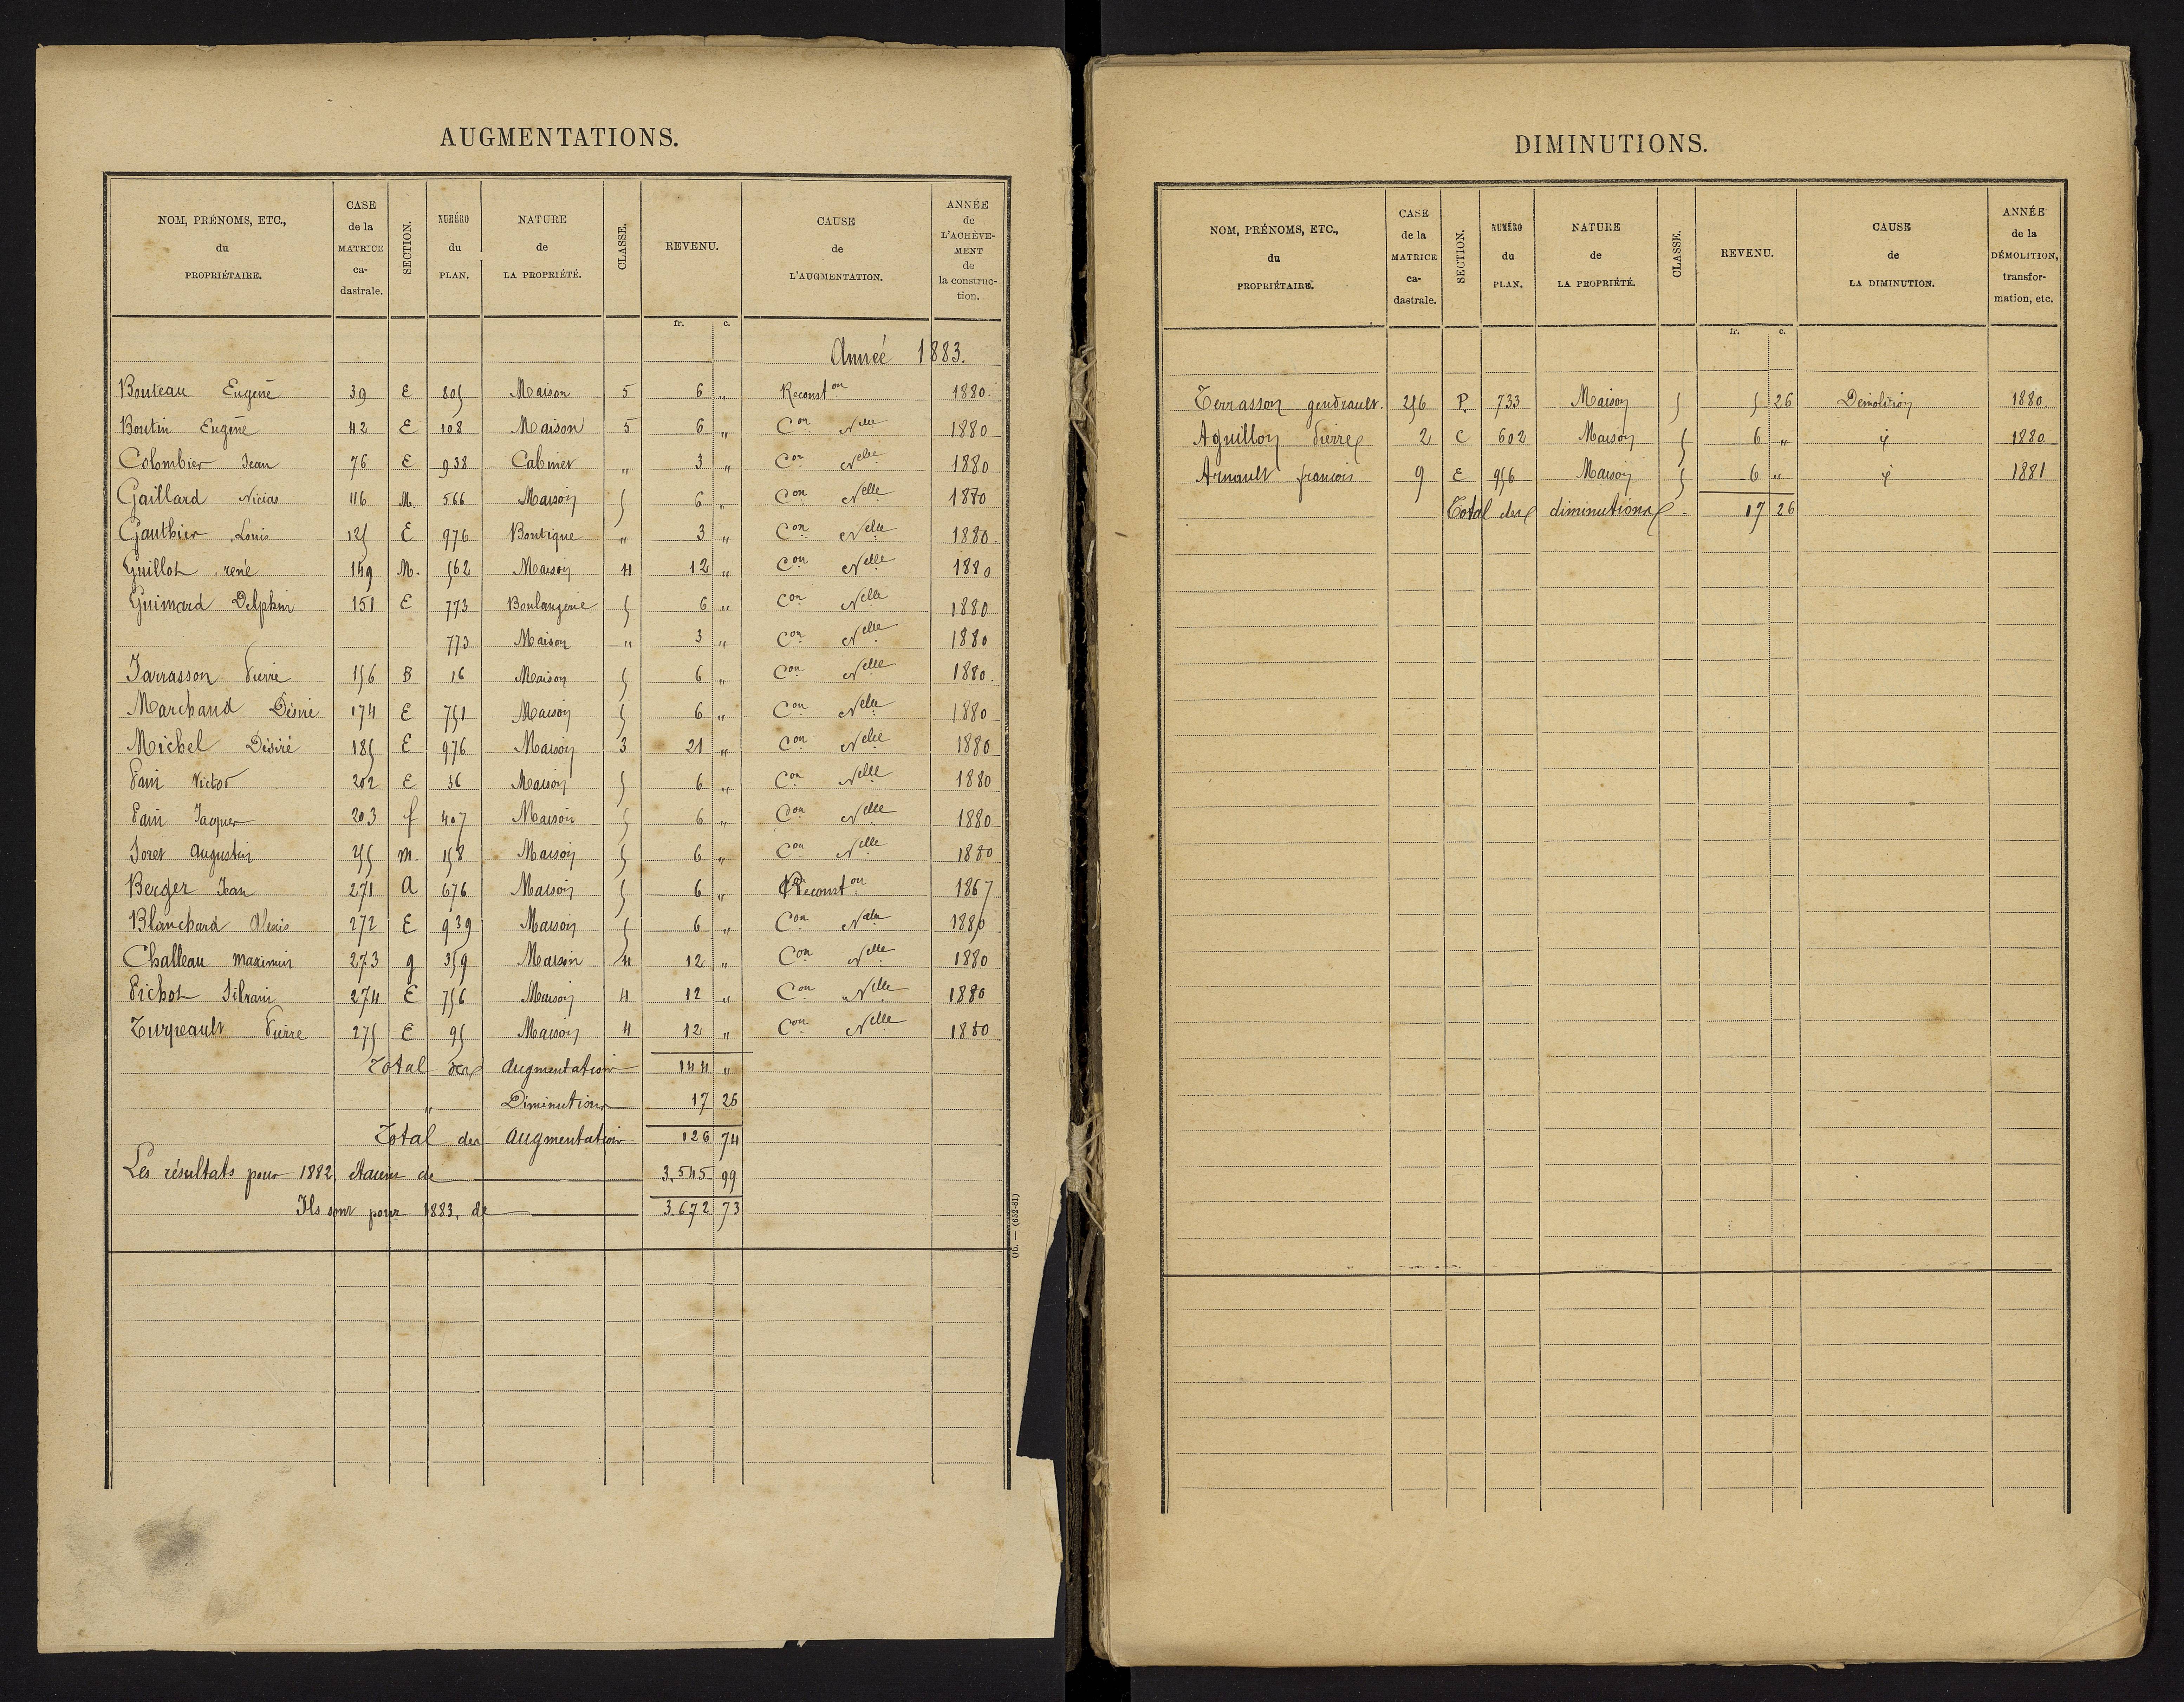 AUGMENTATIONS.
NOM, PRÉNOMS, ETC., du PROPRIÉTAIRE. CASE de la MATRICE ca- dastrale. SECTION. NUMÉRO du PLAN. NATURE de LA PROPRIÉTÉ. CLASSE. REVENU. CAUSE de L'AUGMENTATION. ANNÉE de L'ACHÈVE- MENT de la construc- tion.
fr. c.
Année 1883.
Bouteau Eugene 39 E 805 Maison 5 6 " Reconst on 1880.
Boutin Eugene 42 E 108 Maison 5 6 " Con Nelle 1880
Colombier Jean 76 E 938 Cabinet " 3 " Con Nelle 1880
Gaillard Nicias 116 M. 566 Maison 5 6 " Con Nelle 1870
Gauthier Louis 125 E 976 Boutique " 3 " Con Nelle 1880.
Guillot rené 149 M. 562 Maison 4 12 " Con Nelle 1880
Guimard Delphin 151 E 773 Boulangerie 5 6 " Con Nelle 1880
773 Maison " 3 " Con Nelle 1880
Jarrasson Pierre 156 B 16 Maison 5 6 " Con Nelle 1880.
Marchand Désiré 174 E 751 Maison 5 6 " Con Nelle 1880
Michel Désiré 185 E 976 Maison 3 21 " Con Nelle 1880
Pain Victor 202 E 36 Maison 5 6 " Con Nelle 1880
Pain Jacques 203 f 407 Maison 5 6 " Con Nelle 1880
Soret Augustin 255 m. 158 Maison 5 6 " Con Nelle 1880
Berger Jean 271 A 676 Maison 5 6 " Reconst on 1867
Blanchard Alexis 272 E 939 Maison 5 6 " Con Nelle 1880
Challeau Maximin 273 g 359 Maison 4 12 " Con Nelle 1880
Pichot Silvain 274 E 756 Maison 4 12 " Con Nelle 1880
Turpeault Pierre 275 E 95 Maison 4 12 " Con Nelle 1880
Total des Augmentations 144 "
" Diminutions 17 26
Total des Augmentations 126 74
Les résultats pour 1882 étaient de 3.545 99
Ils sont pour 1883, de 3.672 73
Ob. — (652-81)
DIMINUTIONS.
NOM, PRÉNOMS, ETC., du PROPRIÉTAIRE. CASE de la MATRICE ca- dastrale. SECTION. NUMÉRO du PLAN. NATURE de LA PROPRIÉTÉ. CLASSE. REVENU. CAUSE de LA DIMINUTION. ANNÉE de la DÉMOLITION, transfor- mation, etc.
fr. c.
Terrasson gendreault. 256 P. 733 Maison 5 5 26 Demolition 1880
Aguillon Pierre 2 C 602 Maison 5 6 " 1880
Arnault francois 9 E 956 Maison 5 6 " 1881
Total des diminutions. 17 26